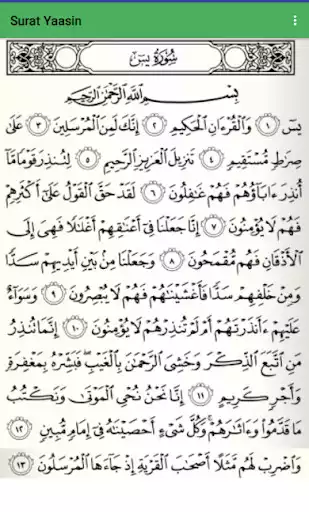 Surat Yaasin
سُورَةُ يسٓ
بِسْمِ اللَّهِ الرَّحْمَٰنِ الرَّحِيمِ
يسٓ ١ وَالْقُرْءَانِ الْحَكِيمِ ٢ إِنَّكَ لَمِنَ الْمُرْسَلِينَ ٣ عَلَىٰ
صِرَٰطٍ مُّسْتَقِيمٍ ٤ تَنزِيلَ الْعَزِيزِ الرَّحِيمِ ٥ لِتُنذِرَ قَوْمًا مَّا
أُنذِرَ ءَابَآؤُهُمْ فَهُمْ غَٰفِلُونَ ٦ لَقَدْ حَقَّ الْقَوْلُ عَلَىٰٓ أَكْثَرِهِمْ
فَهُمْ لَا يُؤْمِنُونَ ٧ إِنَّا جَعَلْنَا فِىٓ أَعْنَٰقِهِمْ أَغْلَٰلًا فَهِىَ إِلَى
الْأَذْقَانِ فَهُم مُّقْمَحُونَ ٨ وَجَعَلْنَا مِنۢ بَيْنِ أَيْدِيهِمْ سَدًّا
وَمِنْ خَلْفِهِمْ سَدًّا فَأَغْشَيْنَٰهُمْ فَهُمْ لَا يُبْصِرُونَ ٩ وَسَوَآءٌ
عَلَيْهِمْ ءَأَنذَرْتَهُمْ أَمْ لَمْ تُنذِرْهُمْ لَا يُؤْمِنُونَ ١٠ إِنَّمَا تُنذِرُ
مَنِ اتَّبَعَ الذِّكْرَ وَخَشِىَ الرَّحْمَٰنَ بِالْغَيْبِ ۖ فَبَشِّرْهُ بِمَغْفِرَةٍ
وَأَجْرٍ كَرِيمٍ ١١ إِنَّا نَحْنُ نُحْىِ الْمَوْتَىٰ وَنَكْتُبُ
مَا قَدَّمُوا۟ وَءَاثَٰرَهُمْ ۚ وَكُلَّ شَىْءٍ أَحْصَيْنَٰهُ فِىٓ إِمَامٍ مُّبِينٍ ١٢
وَاضْرِبْ لَهُم مَّثَلًا أَصْحَٰبَ الْقَرْيَةِ إِذْ جَآءَهَا الْمُرْسَلُونَ ١٣